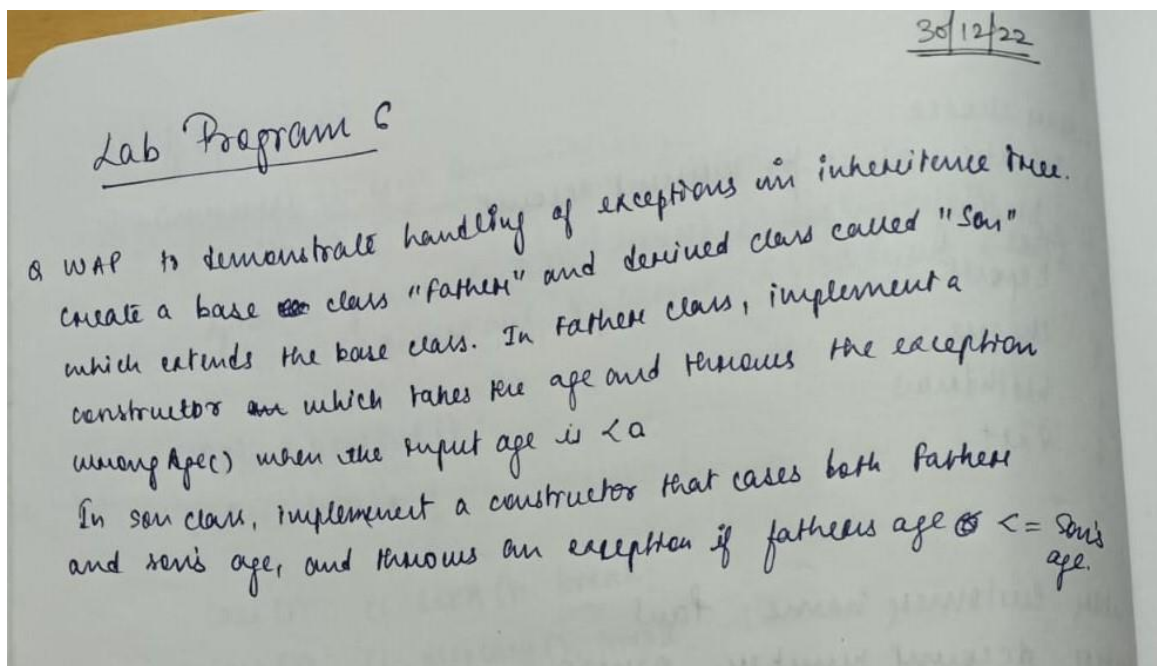 30/12/22
Lab Program 6
Q WAP to demonstrate handling of exceptions in inheritence tree.
Create a base class "Father" and derived class called "Son"
which extends the base class. In Father class, implement a
constructor which takes the age and throws the exception
wrong Age() when the input age is <a
In son class, implement a constructor that cases both Father
and son's age, and throws an exception if fathers age <= Son's
age.